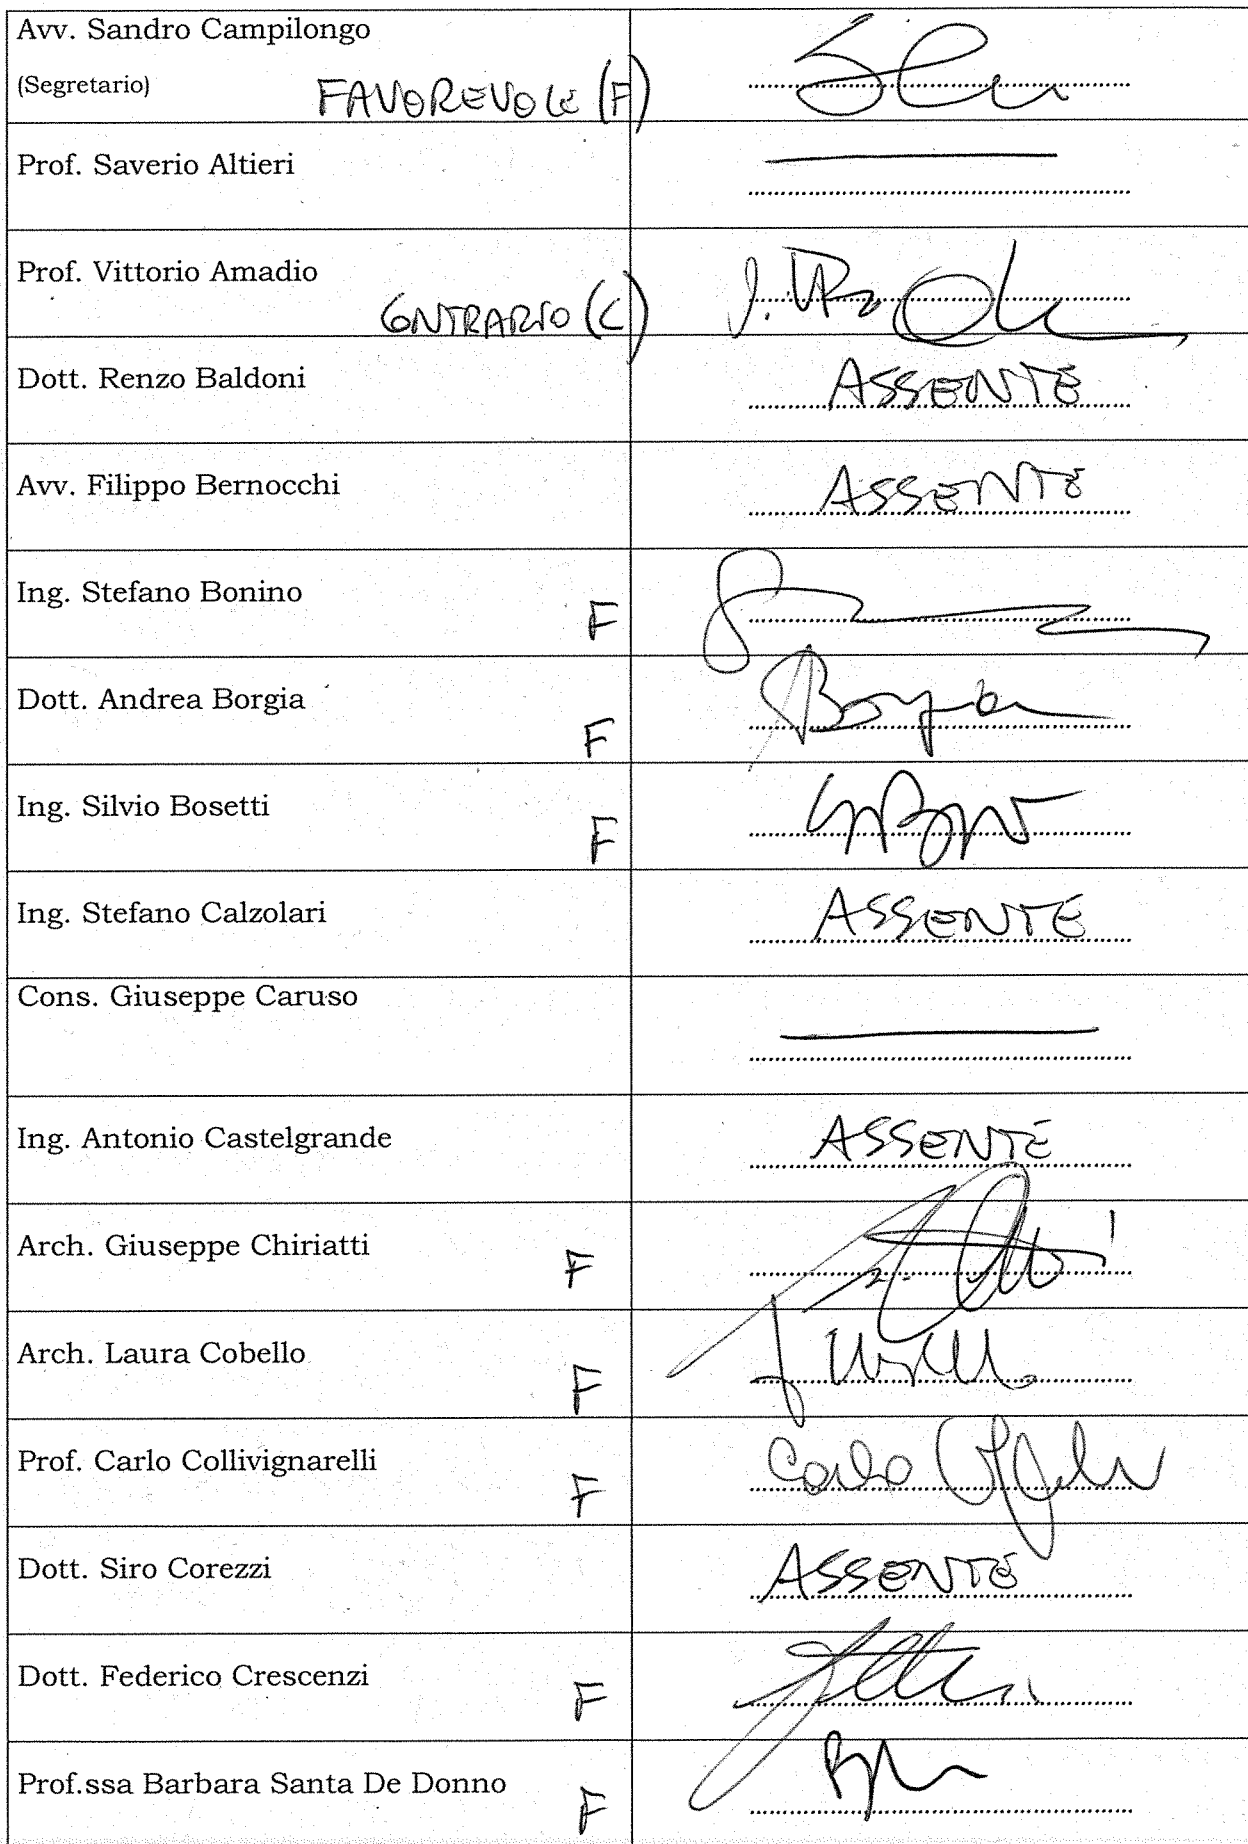 Avv. Sandro Campilongo
(Segretario)
FAVOREVOLE (F)
Prof. Saverio Altieri
Prof. Vittorio Amadio
CONTRARIO (C)
Dott. Renzo Baldoni
ASSENTE
Avv. Filippo Bernocchi
ASSENTE
Ing. Stefano Bonino
F
Dott. Andrea Borgia
F
Borgia
Ing. Silvio Bosetti
F
Ing. Stefano Calzolari
ASSENTE
Cons. Giuseppe Caruso
Ing. Antonio Castelgrande
ASSENTE
Arch. Giuseppe Chiriatti
F
Arch. Laura Cobello
F
Prof. Carlo Collivignarelli
F
Carlo
Dott. Siro Corezzi
ASSENTE
Dott. Federico Crescenzi
F
Prof.ssa Barbara Santa De Donno
F